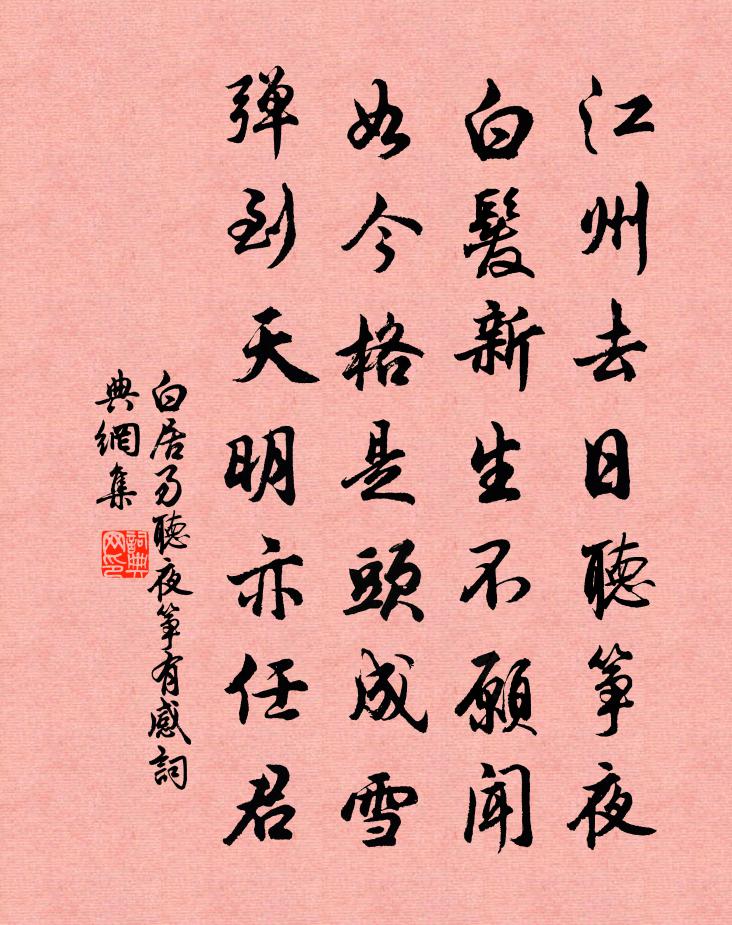 江州去日聽筝夜
白髮新生不願聞
如今格是頭成雪
弾到天明亦任君
白居易聽夜筝有感詞
典網集
詞典
网印